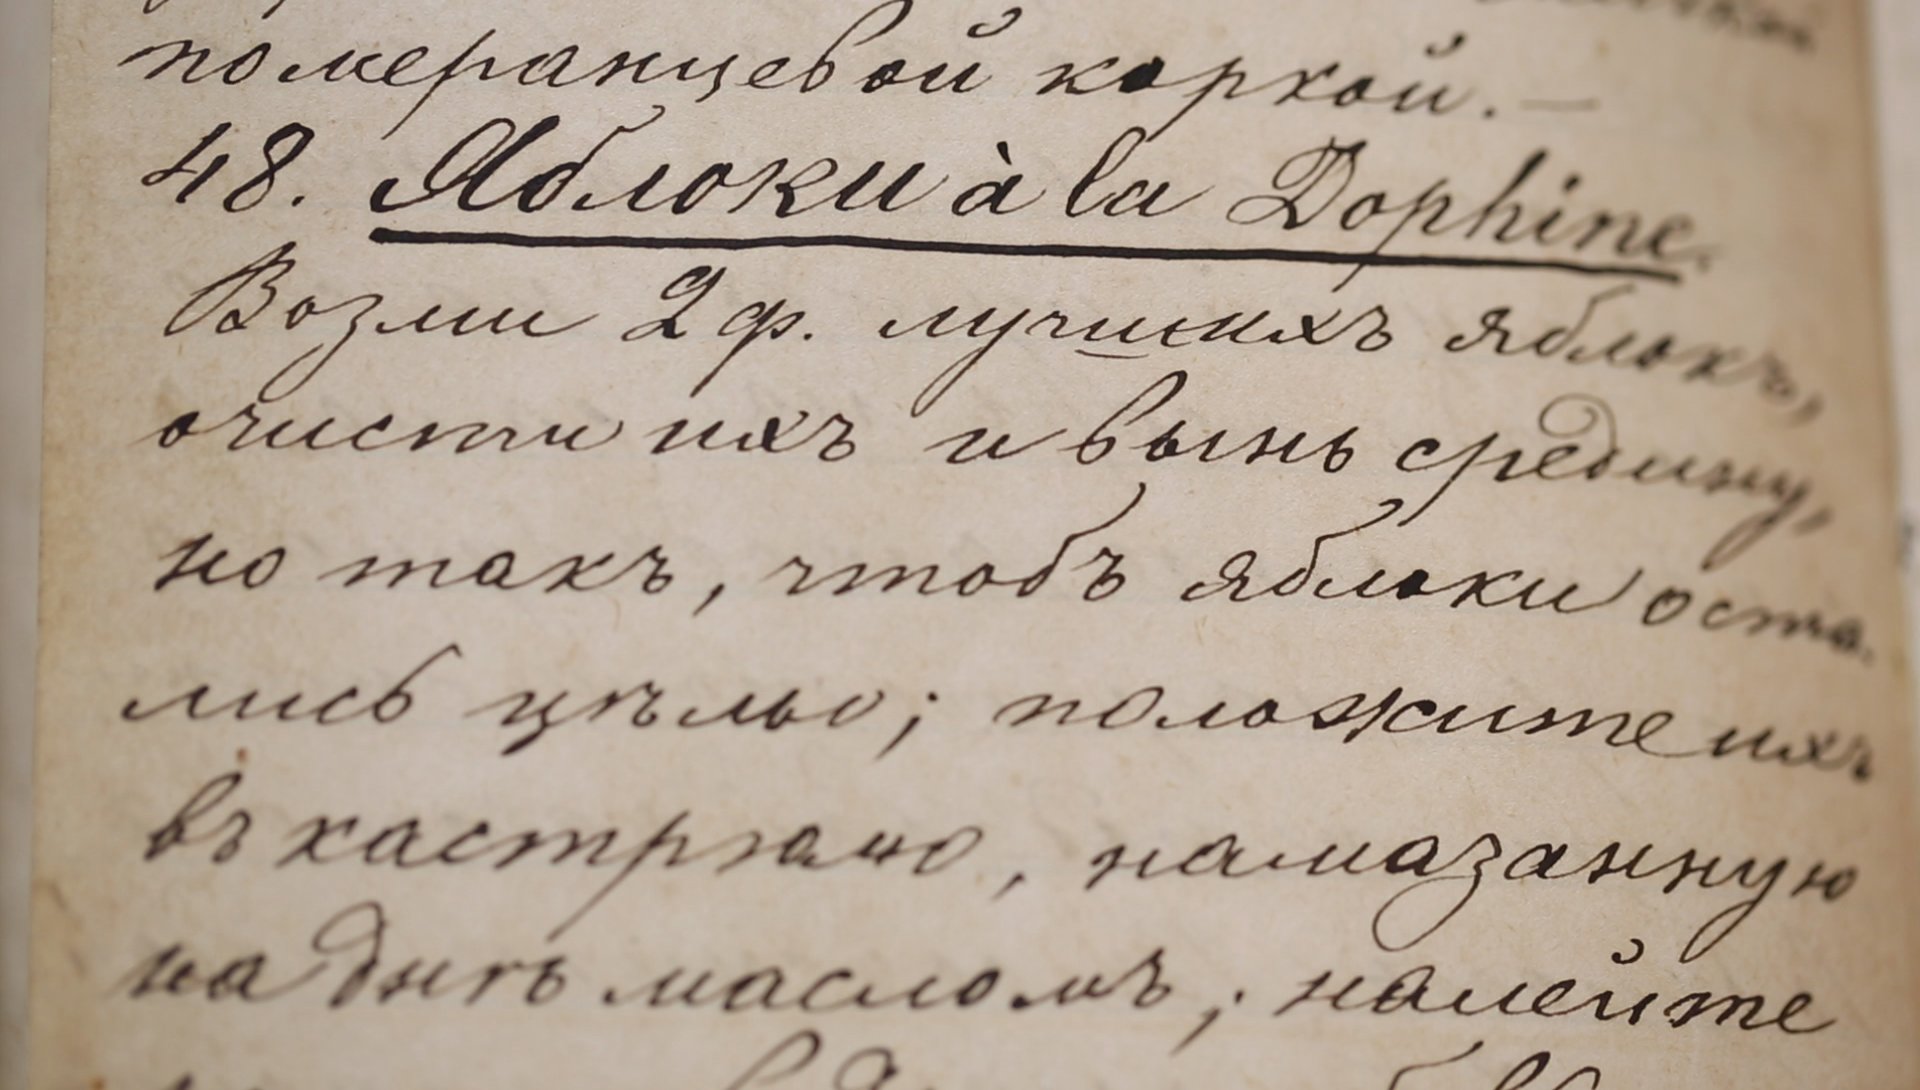 померанцевой коркой. —
48. Яблоки à la Dophine.
Возми 2 ф. лучшихъ яблокъ,
очисти ихъ и вынь средину,
но такъ, чтобъ яблоки оста-
лись цѣлы; положите ихъ
въ кастрюлю, намазанную
на днѣ масломъ; налейте